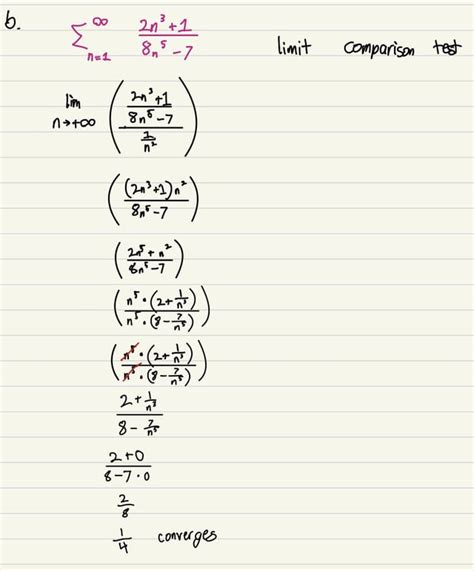 b. ∞ Σ n=1 (2n³+1)/(8n⁵-7) limit comparison test
lim n→+∞ (((2n³+1)/(8n⁵-7))/(1/n²))
(((2n³+1)n²)/(8n⁵-7))
((2n⁵+n²)/(8n⁵-7))
((n⁵·(2+1/n³))/(n⁵·(8-7/n⁵)))
((n⁵·(2+1/n³))/(n⁵·(8-7/n⁵)))
(2+1/n³)/(8-7/n⁵)
(2+0)/(8-7·0)
2/8
1/4 converges